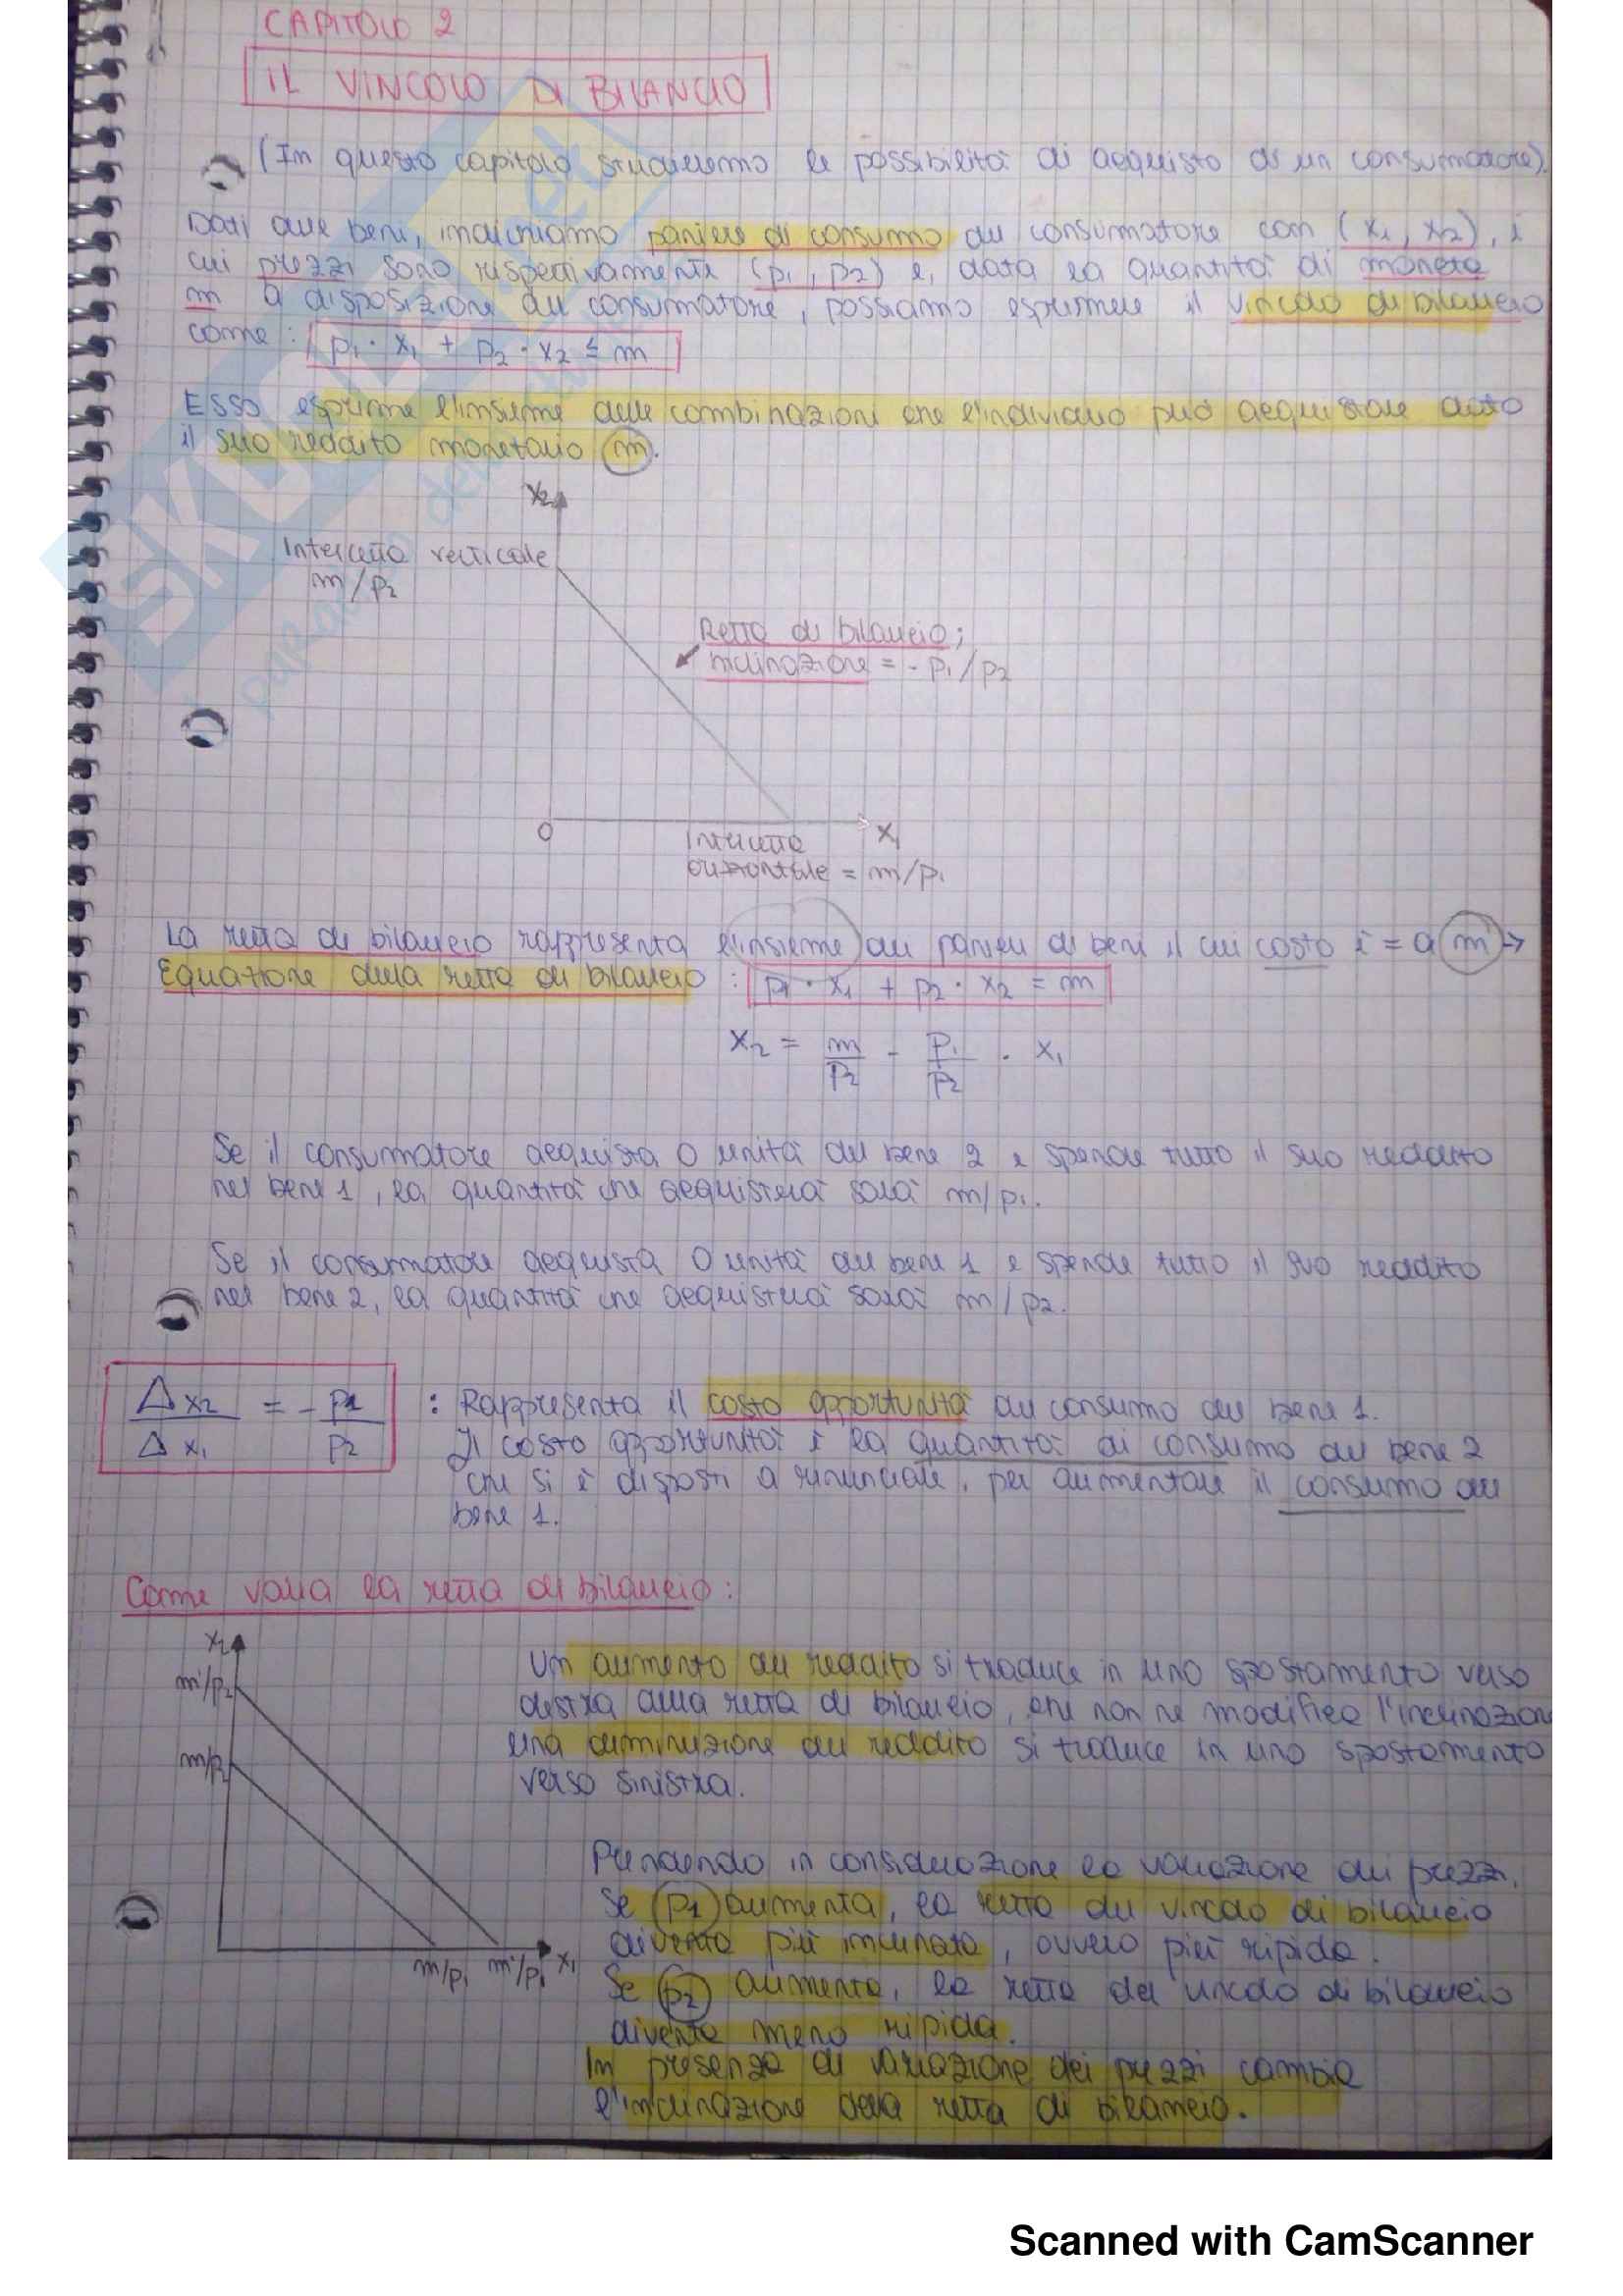 CAPITOLO 2
IL VINCOLO DI BILANCIO
(In questo capitolo studieremo le possibilità di acquisto di un consumatore).
Dati due beni, indichiamo paniere di consumo del consumatore con (x1, x2), i
cui prezzi sono rispettivamente (p1, p2) e, data la quantità di moneta
m a disposizione del consumatore, possiamo esprimere il vincolo di bilancio
come: p1 · x1 + p2 · x2 ≤ m
Esso esprime l'insieme delle combinazioni che l'individuo può acquistare dato
il suo reddito monetario m.
x2
Intercetta verticale
m/p2
Retta di bilancio;
inclinazione = - p1/p2
0
x1
Intercetta
orizzontale = m/p1
La retta di bilancio rappresenta l'insieme dei panieri di beni il cui costo è = a m →
Equazione della retta di bilancio: p1 · x1 + p2 · x2 = m
x2 = m/p2 - p1/p2 · x1
Se il consumatore acquista 0 unità del bene 2 e spende tutto il suo reddito
nel bene 1, la quantità che acquisterà sarà m/p1.
Se il consumatore acquista 0 unità del bene 1 e spende tutto il suo reddito
nel bene 2, la quantità che acquisterà sarà m/p2.
Δx2/Δx1 = - p1/p2 : Rappresenta il costo opportunità del consumo del bene 1.
Il costo opportunità è la quantità di consumo del bene 2
che si è disposti a rinunciare, per aumentare il consumo del
bene 1.
Come varia la retta di bilancio:
x2
m'/p2
m/p2
m/p1 m'/p1 x1
Un aumento del reddito si traduce in uno spostamento verso
destra della retta di bilancio, che non ne modifica l'inclinazione
una diminuzione del reddito si traduce in uno spostamento
verso sinistra.
Prendendo in considerazione la variazione dei prezzi,
Se p1 aumenta, la retta del vincolo di bilancio
diventa più inclinata, ovvero più ripida.
Se p2 aumenta, la retta del vincolo di bilancio
diventa meno ripida.
In presenza di variazione dei prezzi cambia
l'inclinazione della retta di bilancio.
Scanned with CamScanner